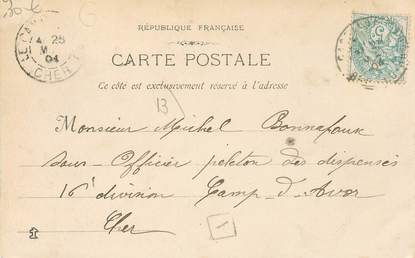 RÉPUBLIQUE FRANÇAISE
CARTE POSTALE
Ce côté est exclusivement réservé à l'adresse
B
Monsieur Michel Bonnafouk
sous-Officier peloton des dispensés
16e division Camp-d'Avor
Cher
1